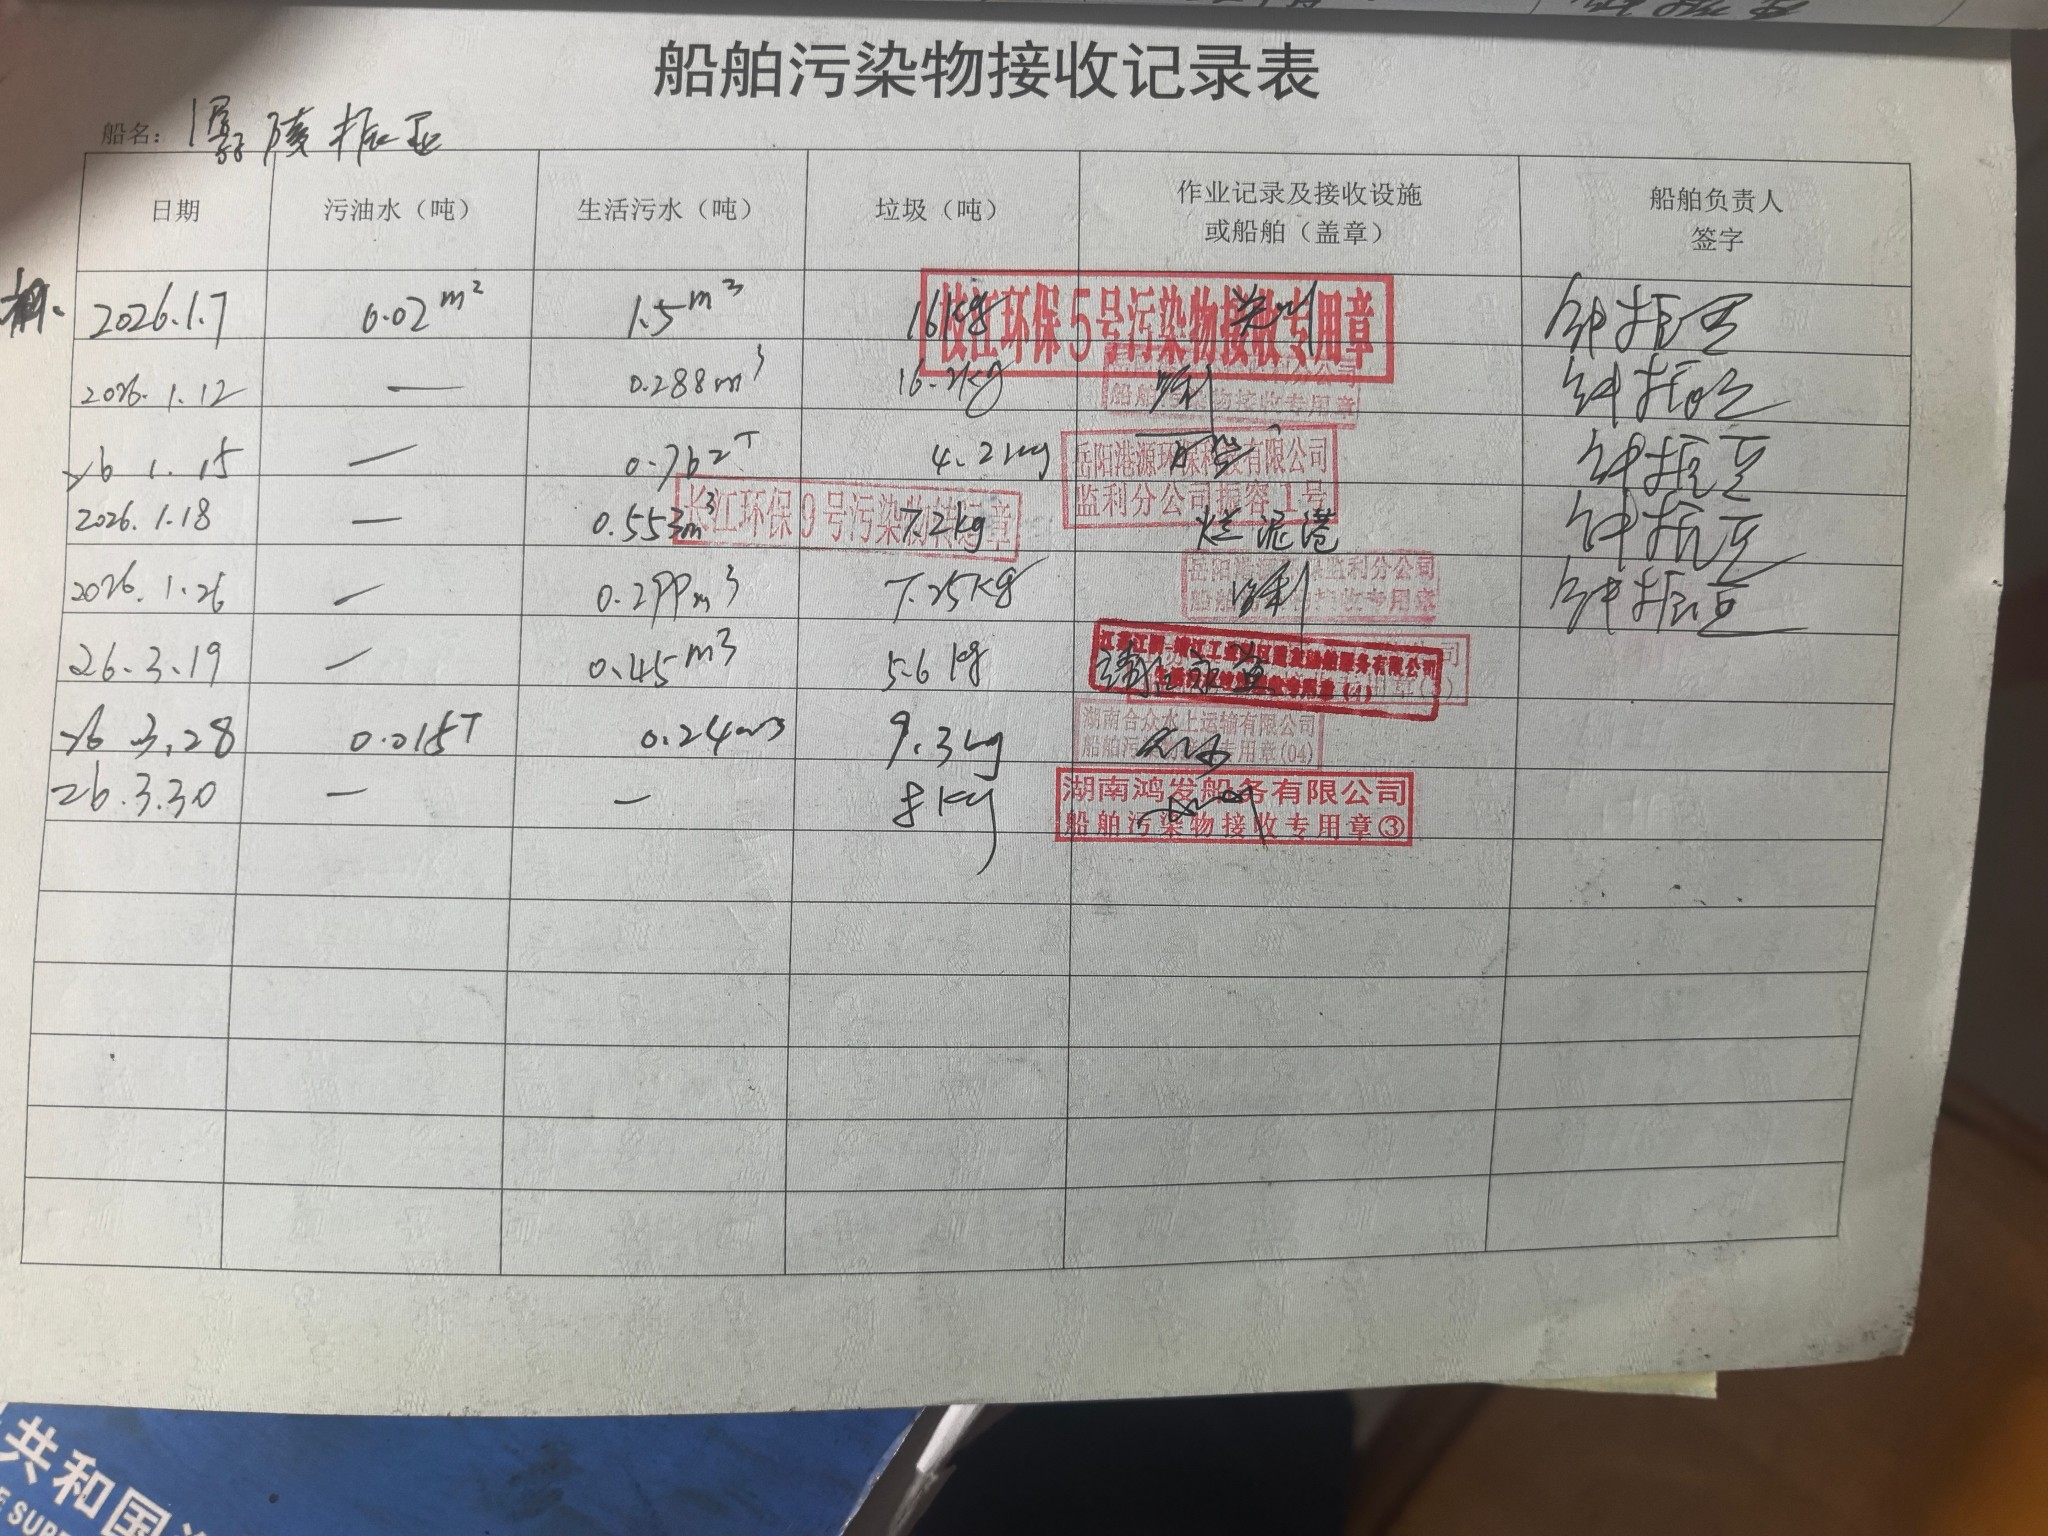 船舶污染物接收记录表
船名: 潺陵振亚
日期 污油水（吨） 生活污水（吨） 垃圾（吨） 作业记录及接收设施或船舶（盖章） 船舶负责人签字
2026.1.7 0.02m² 1.5m³ 16kg 枝江环保5号污染物接收专用章 钟振亚
2026.1.12 — 0.288m³ 16.2kg 监利 船舶污染物接收专用章 钟振亚
26 1.15 — 0.762T 4.2kg 岳阳港源环保科技有限公司 监利分公司振容1号 钟振亚
2026.1.18 — 0.553m³ 7.2kg 长江环保9号污染物转运章 烂泥港 钟振亚
2026.1.26 — 0.299m³ 7.25kg 监利 监利分公司 接收专用章 钟振亚
26.3.19 — 0.45m³ 5.6kg 服务有限公司
26 3.28 0.015T 0.24m³ 9.3kg 湖南合众水上运输有限公司 船舶污 专用章(04)
26.3.30 — — 8Kg 湖南鸿发船务有限公司 船舶污染物接收专用章③
共和国